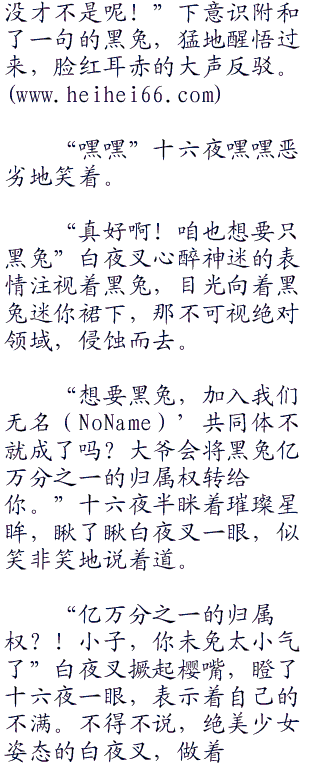 没才不是呢！”下意识附和
了一句的黑兔，猛地醒悟过
来，脸红耳赤的大声反驳。
(www.heihei66.com)
“嘿嘿”十六夜嘿嘿恶
劣地笑着。
“真好啊！咱也想要只
黑兔”白夜叉心醉神迷的表
情注视着黑兔，目光向着黑
兔迷你裙下，那不可视绝对
领域，侵蚀而去。
“想要黑兔，加入我们
无名（NoName）’共同体不
就成了吗？大爷会将黑兔亿
万分之一的归属权转给
你。”十六夜半眯着璀璨星
眸，瞅了瞅白夜叉一眼，似
笑非笑地说着道。
“亿万分之一的归属
权？！小子，你未免太小气
了”白夜叉撅起樱嘴，瞪了
十六夜一眼，表示着自己的
不满。不得不说，绝美少女
姿态的白夜叉，做着